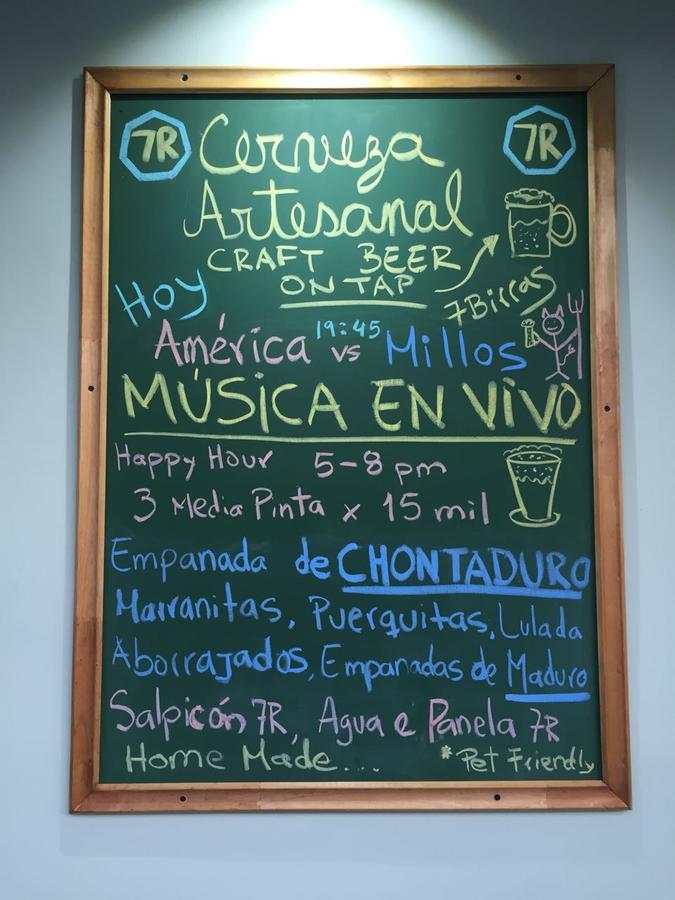 7R Cerveza 7R
Artesanal
CRAFT BEER
ON TAP
Hoy
7Birras
19:45
América vs Millos
MÚSICA EN VIVO
Happy Hour 5-8 pm
3 Media Pinta x 15 mil
Empanada de CHONTADURO
Marranitas, Puerquitas, Lulada
Aborrajados, Empanadas de Maduro
Salpicón 7R, Agua e Panela 7R
Home Made... *Pet Friendly